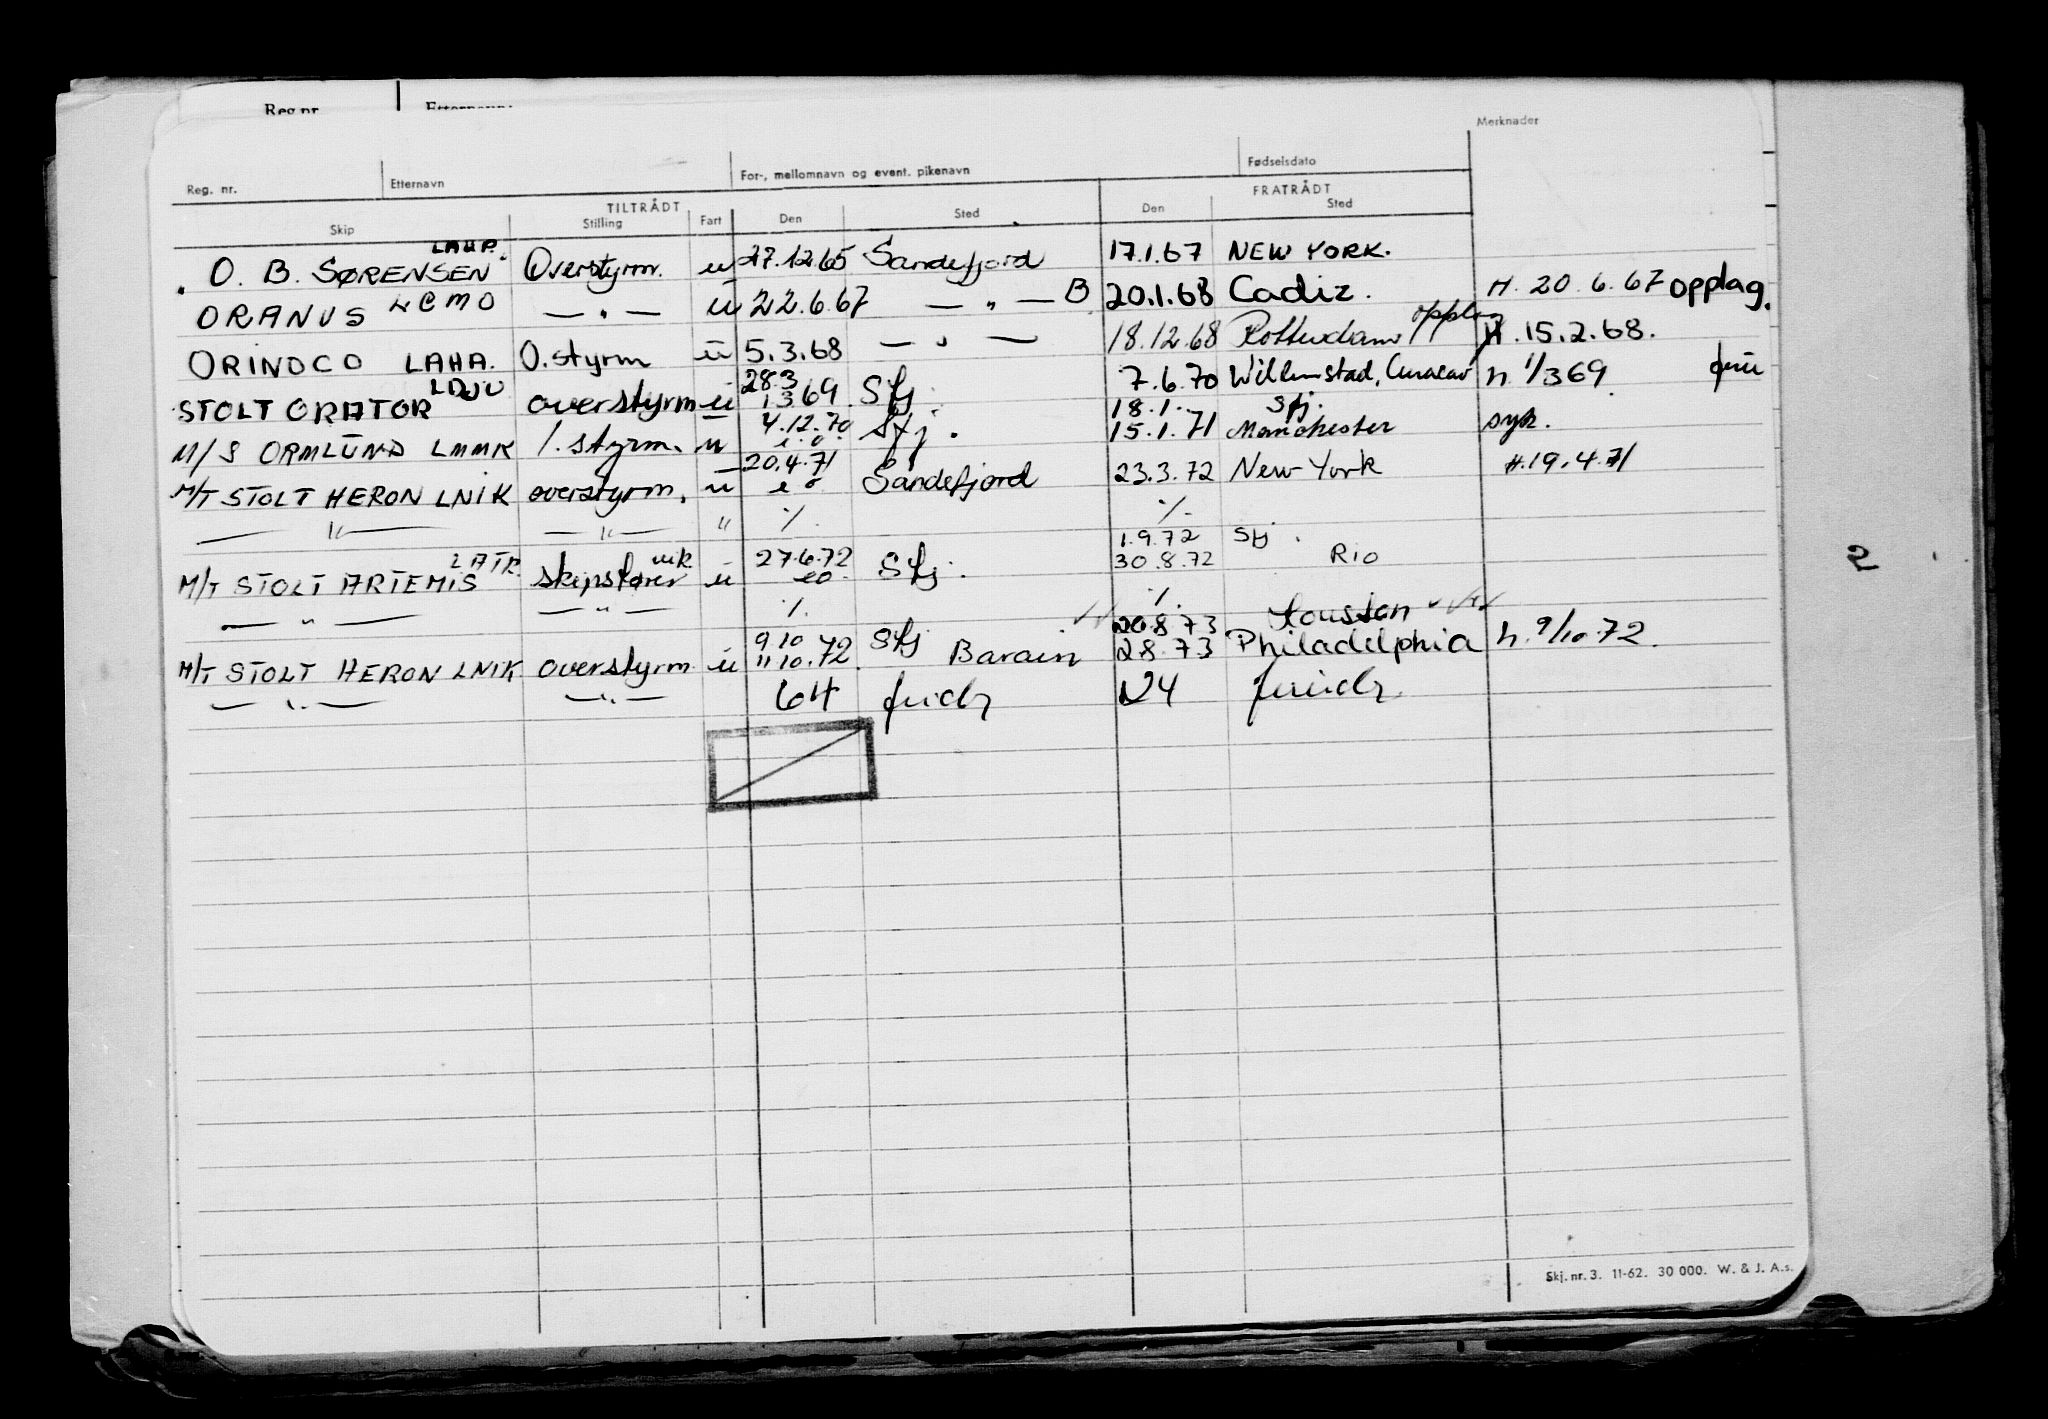 Merknader
Reg. nr. Etternavn For-, mellomnavn og event. pikenavn Fødselsdato
TILTRÅDT FRATRÅDT
Skip Stilling Fart Den Sted Den Sted
O. B. SØRENSEN LAHP. Overstyrm. u 27.12.65 Sandefjord 17.1.67 NEW YORK.
ORANUS LCMO — " — u 22.6.67 — " — B 20.1.68 Cadiz. H. 20.6.67 opplag.
ORINOCO LAHA. O.styrm u 5.3.68 — " — 18.12.68 Rotterdam opplag H. 15.2.68.
28.3
STOLT ORATOR LDJU overstyrm u 1 3 69 Sfj. 7.6.70 Willemstad, Curacao h. 1/3 69
4.12.70 18.1. Sfj.
M/S ORMLUND LMMK 1. styrm. u Sfj. 15.1.71 Manchester syk.
20.4.71
M/T STOLT HERON LNIK overstyrm. u Sandefjord 23.3.72 New York H.19.4.71
— " — — " — " % %
27.6.72 1.9.72 Sfj.
M/T STOLT ARTEMIS LATR skipsfører vik u Sfj. 30.8.72 RIO
— " — — " — % %
9 10 Sfj 20.8.73 Houston
M/T STOLT HERON LNIK overstyrm u 11.10.72. Barain 28.73 Philadelphia h. 9/10.72.
— " — — " — 64
2
Skj. nr. 3. 11-62. 30 000. W. & J. A.s.